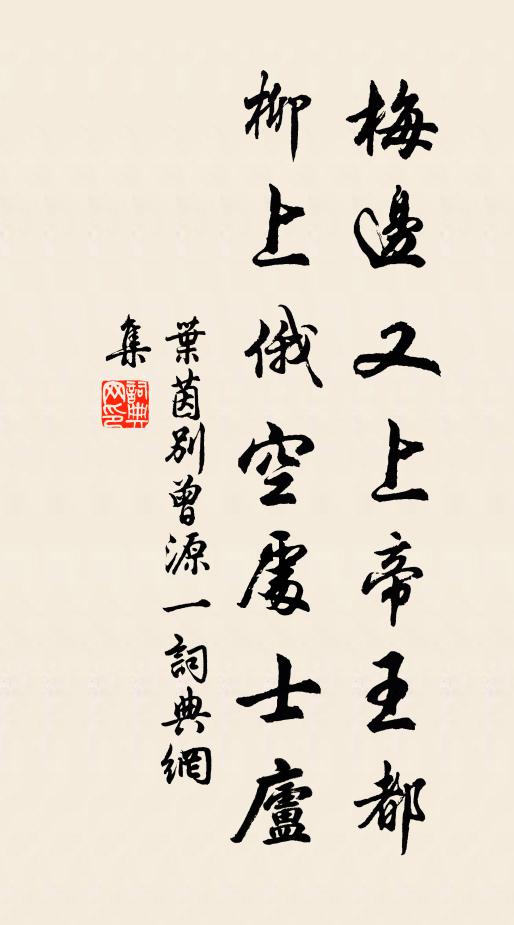 梅邊又上帝王都
柳上俄空處士廬
葉茵別曾源一詞典網
集
詞典網印